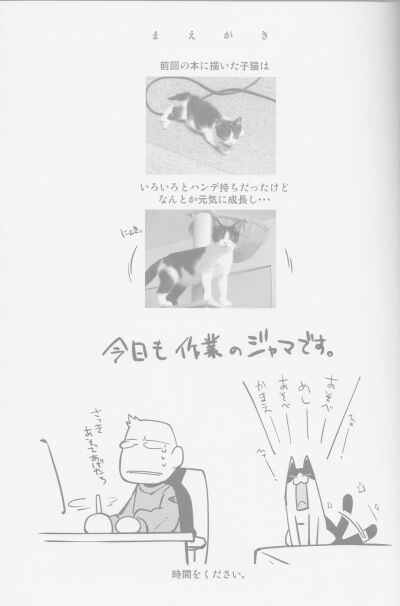 まえがき
前回の本に描いた子猫は
いろいろとハンデ持ちだったけど
なんとか元気に成長し…
にょき。
今日も作業のジャマです。
あそべ
めし
あそべ
かまえ
さっき
あそんであげたろ
時間をください。